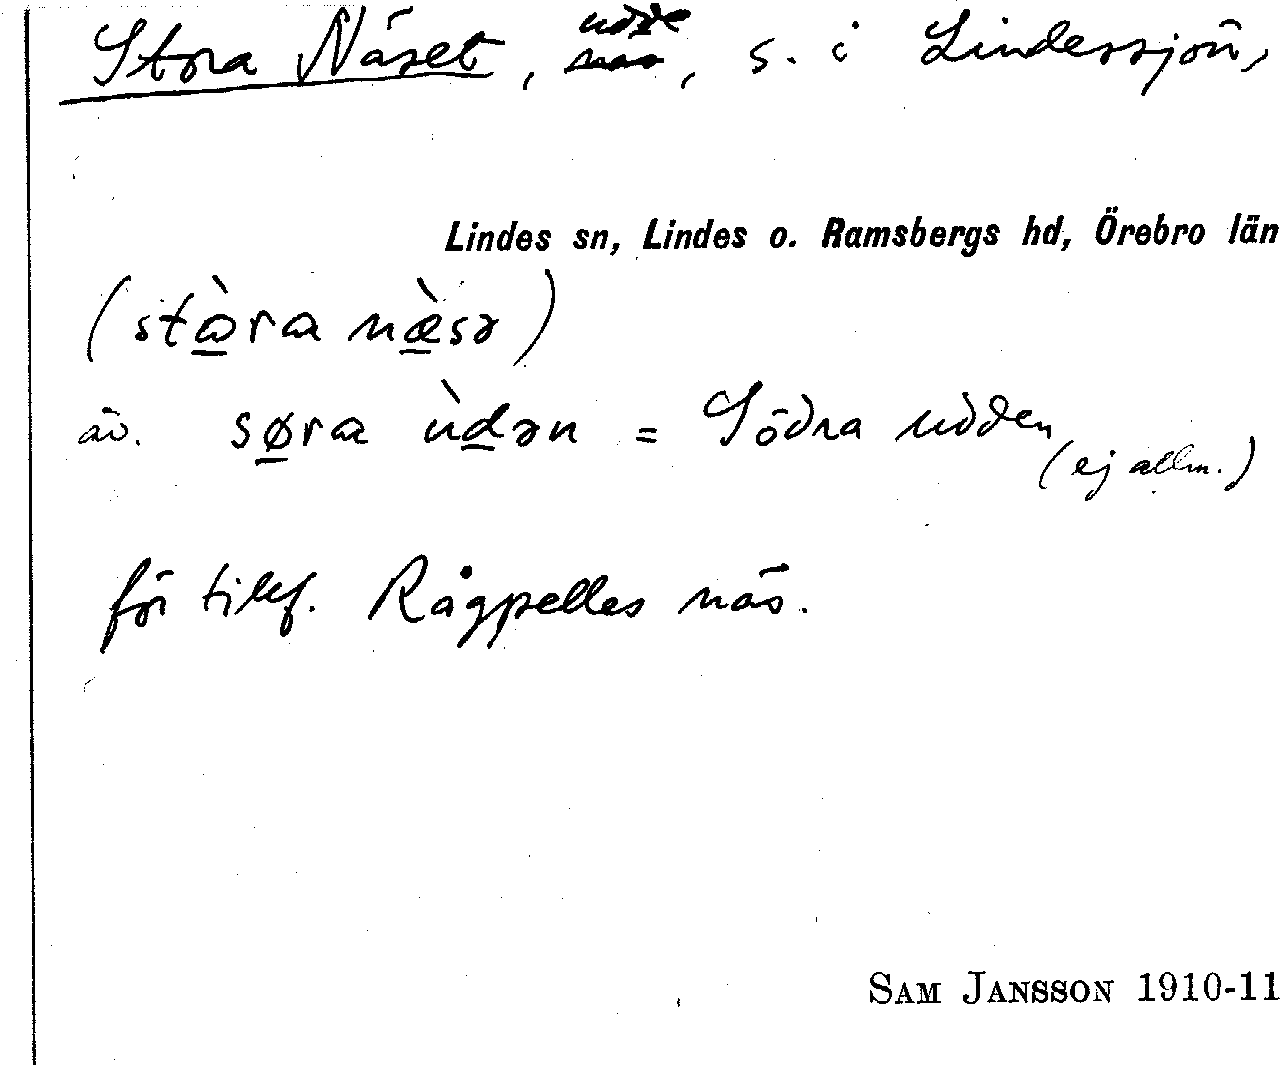 Stora Näset, udde, s. i Lindessjön,
Lindes sn, Lindes o. Ramsbergs hd, Örebro län
(stɷ̀ra næ̀sə)
äv. søra ùdən = Södra udden (ej allm.)
för tillf. Rågpelles näs.
SAM JANSSON 1910-11